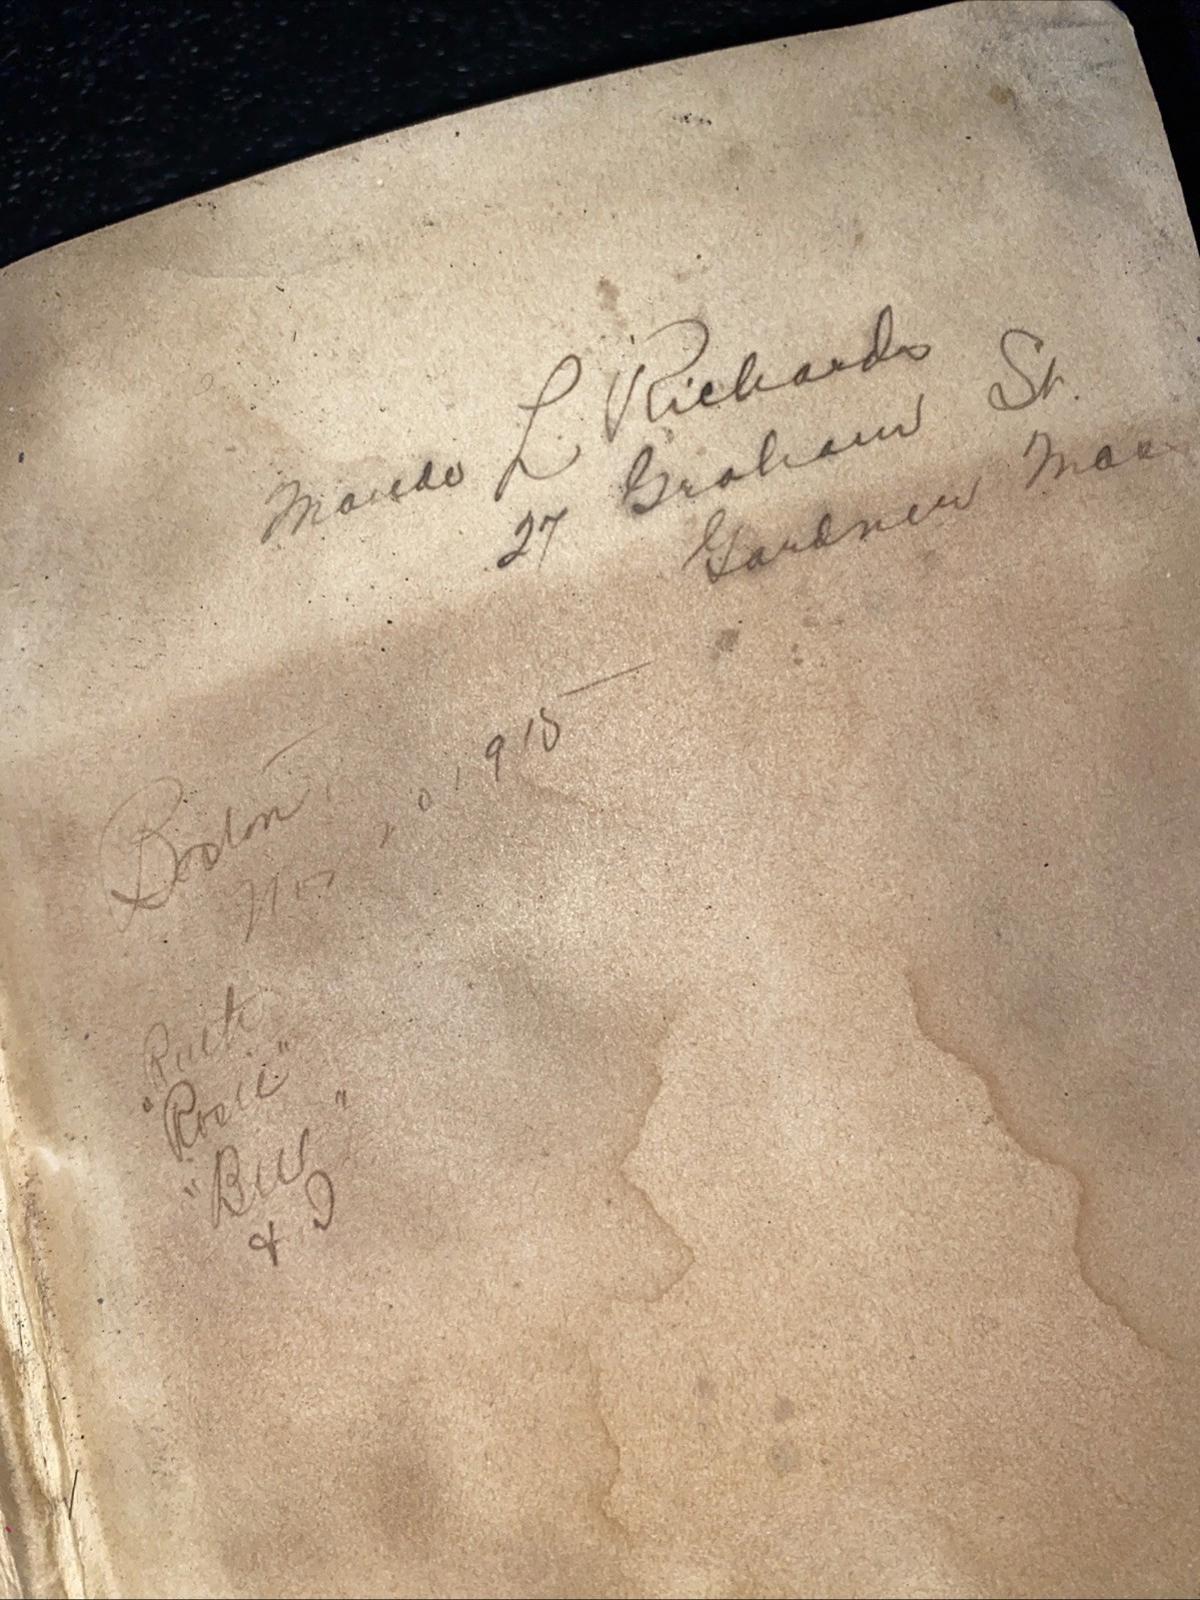 Maude L Richards
27 Graham St.
Gardner Mass
Boston
Nov 20, 1915
Ruth
"Rosie"
"Bill"
& I